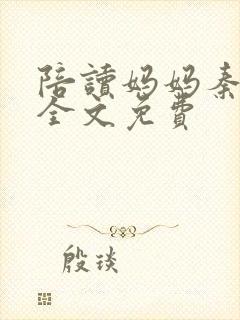 陪讀媽媽秦
全文免費
殷琰